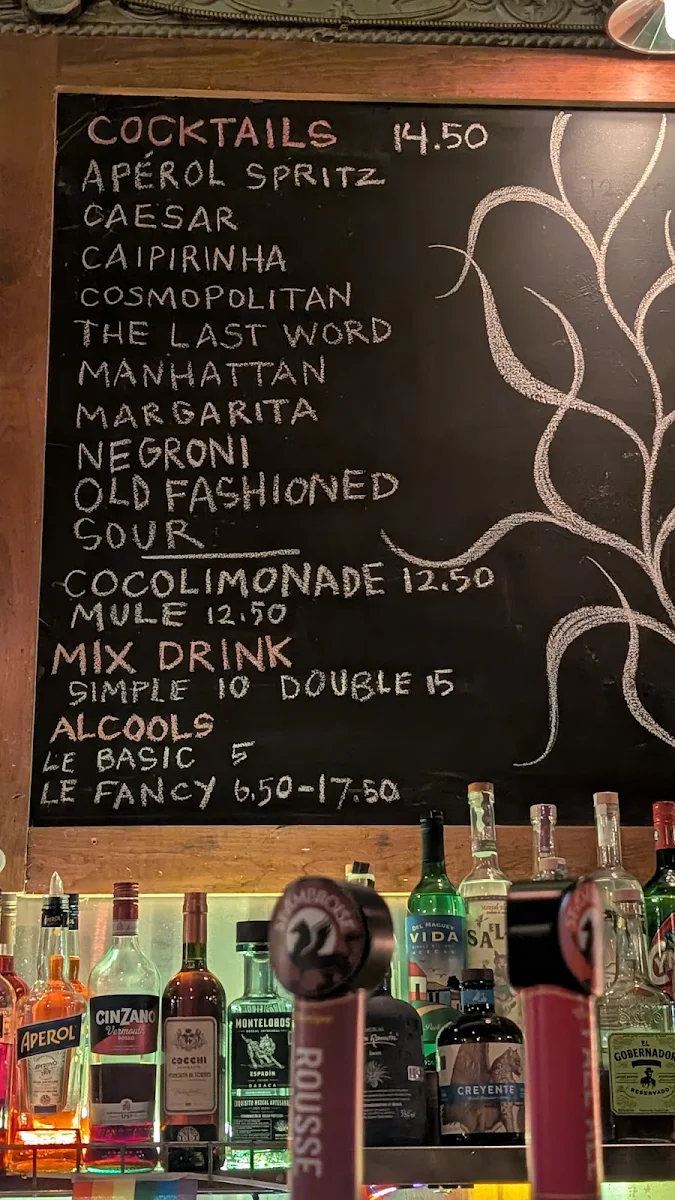 COCKTAILS 14.50
APÉROL SPRITZ
CAESAR
CAIPIRINHA
COSMOPOLITAN
THE LAST WORD
MANHATTAN
MARGARITA
NEGRONI
OLD FASHIONED
SOUR
COCOLIMONADE 12.50
MULE 12.50
MIX DRINK
SIMPLE 10 DOUBLE 15
ALCOOLS
LE BASIC 5
LE FANCY 6.50-17.50
DEL MAGUEY
VIDA
APEROL
CINZANO
Vermouth
1757
COCCHI
MONTELOBOS
ESPADÍN
OAXACA
CREYENTE
EL
GOBERNADOR
RESERVADO
ROUSSE